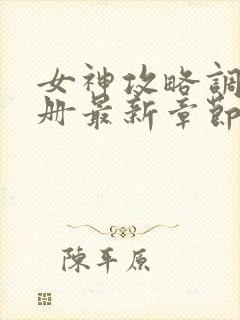 女神攻略調
册最新章節
陳平原